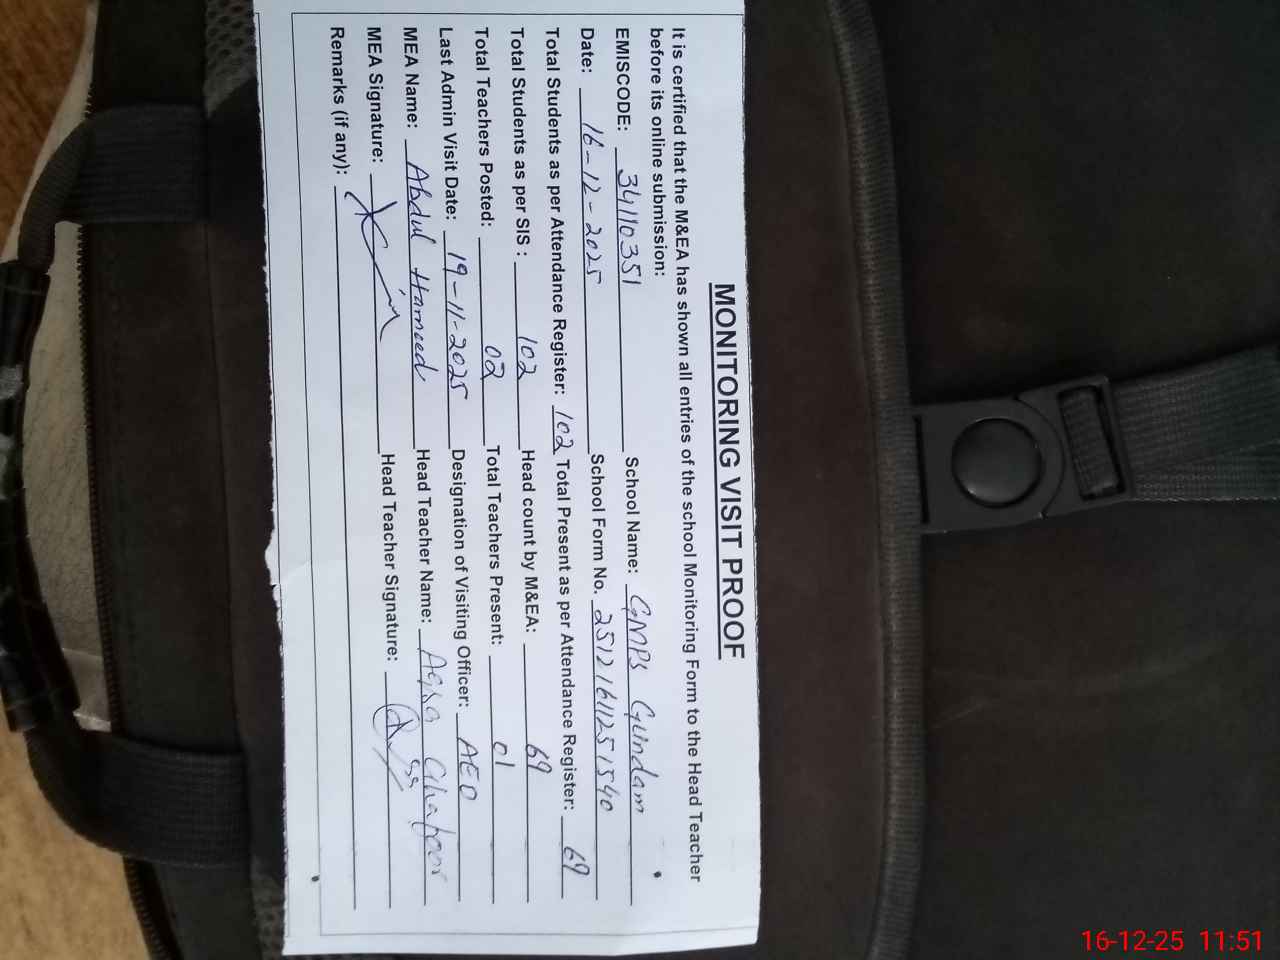 MONITORING VISIT PROOF
It is certified that the M&EA has shown all entries of the school Monitoring Form to the Head Teacher
before its online submission:
EMISCODE: 34110351 School Name: GMPS Gundam
Date: 16-12-2025 School Form No. 2512161125 1540
Total Students as per Attendance Register: 102 Total Present as per Attendance Register: 69
Total Students as per SIS : 102 Head count by M&EA: 69
Total Teachers Posted: 02 Total Teachers Present: 01
Last Admin Visit Date: 19-11-2025 Designation of Visiting Officer: AEO
MEA Name: Abdul Hameed Head Teacher Name: Aqsa Ghafoor
MEA Signature: Head Teacher Signature:
Remarks (if any):
16-12-25 11:51